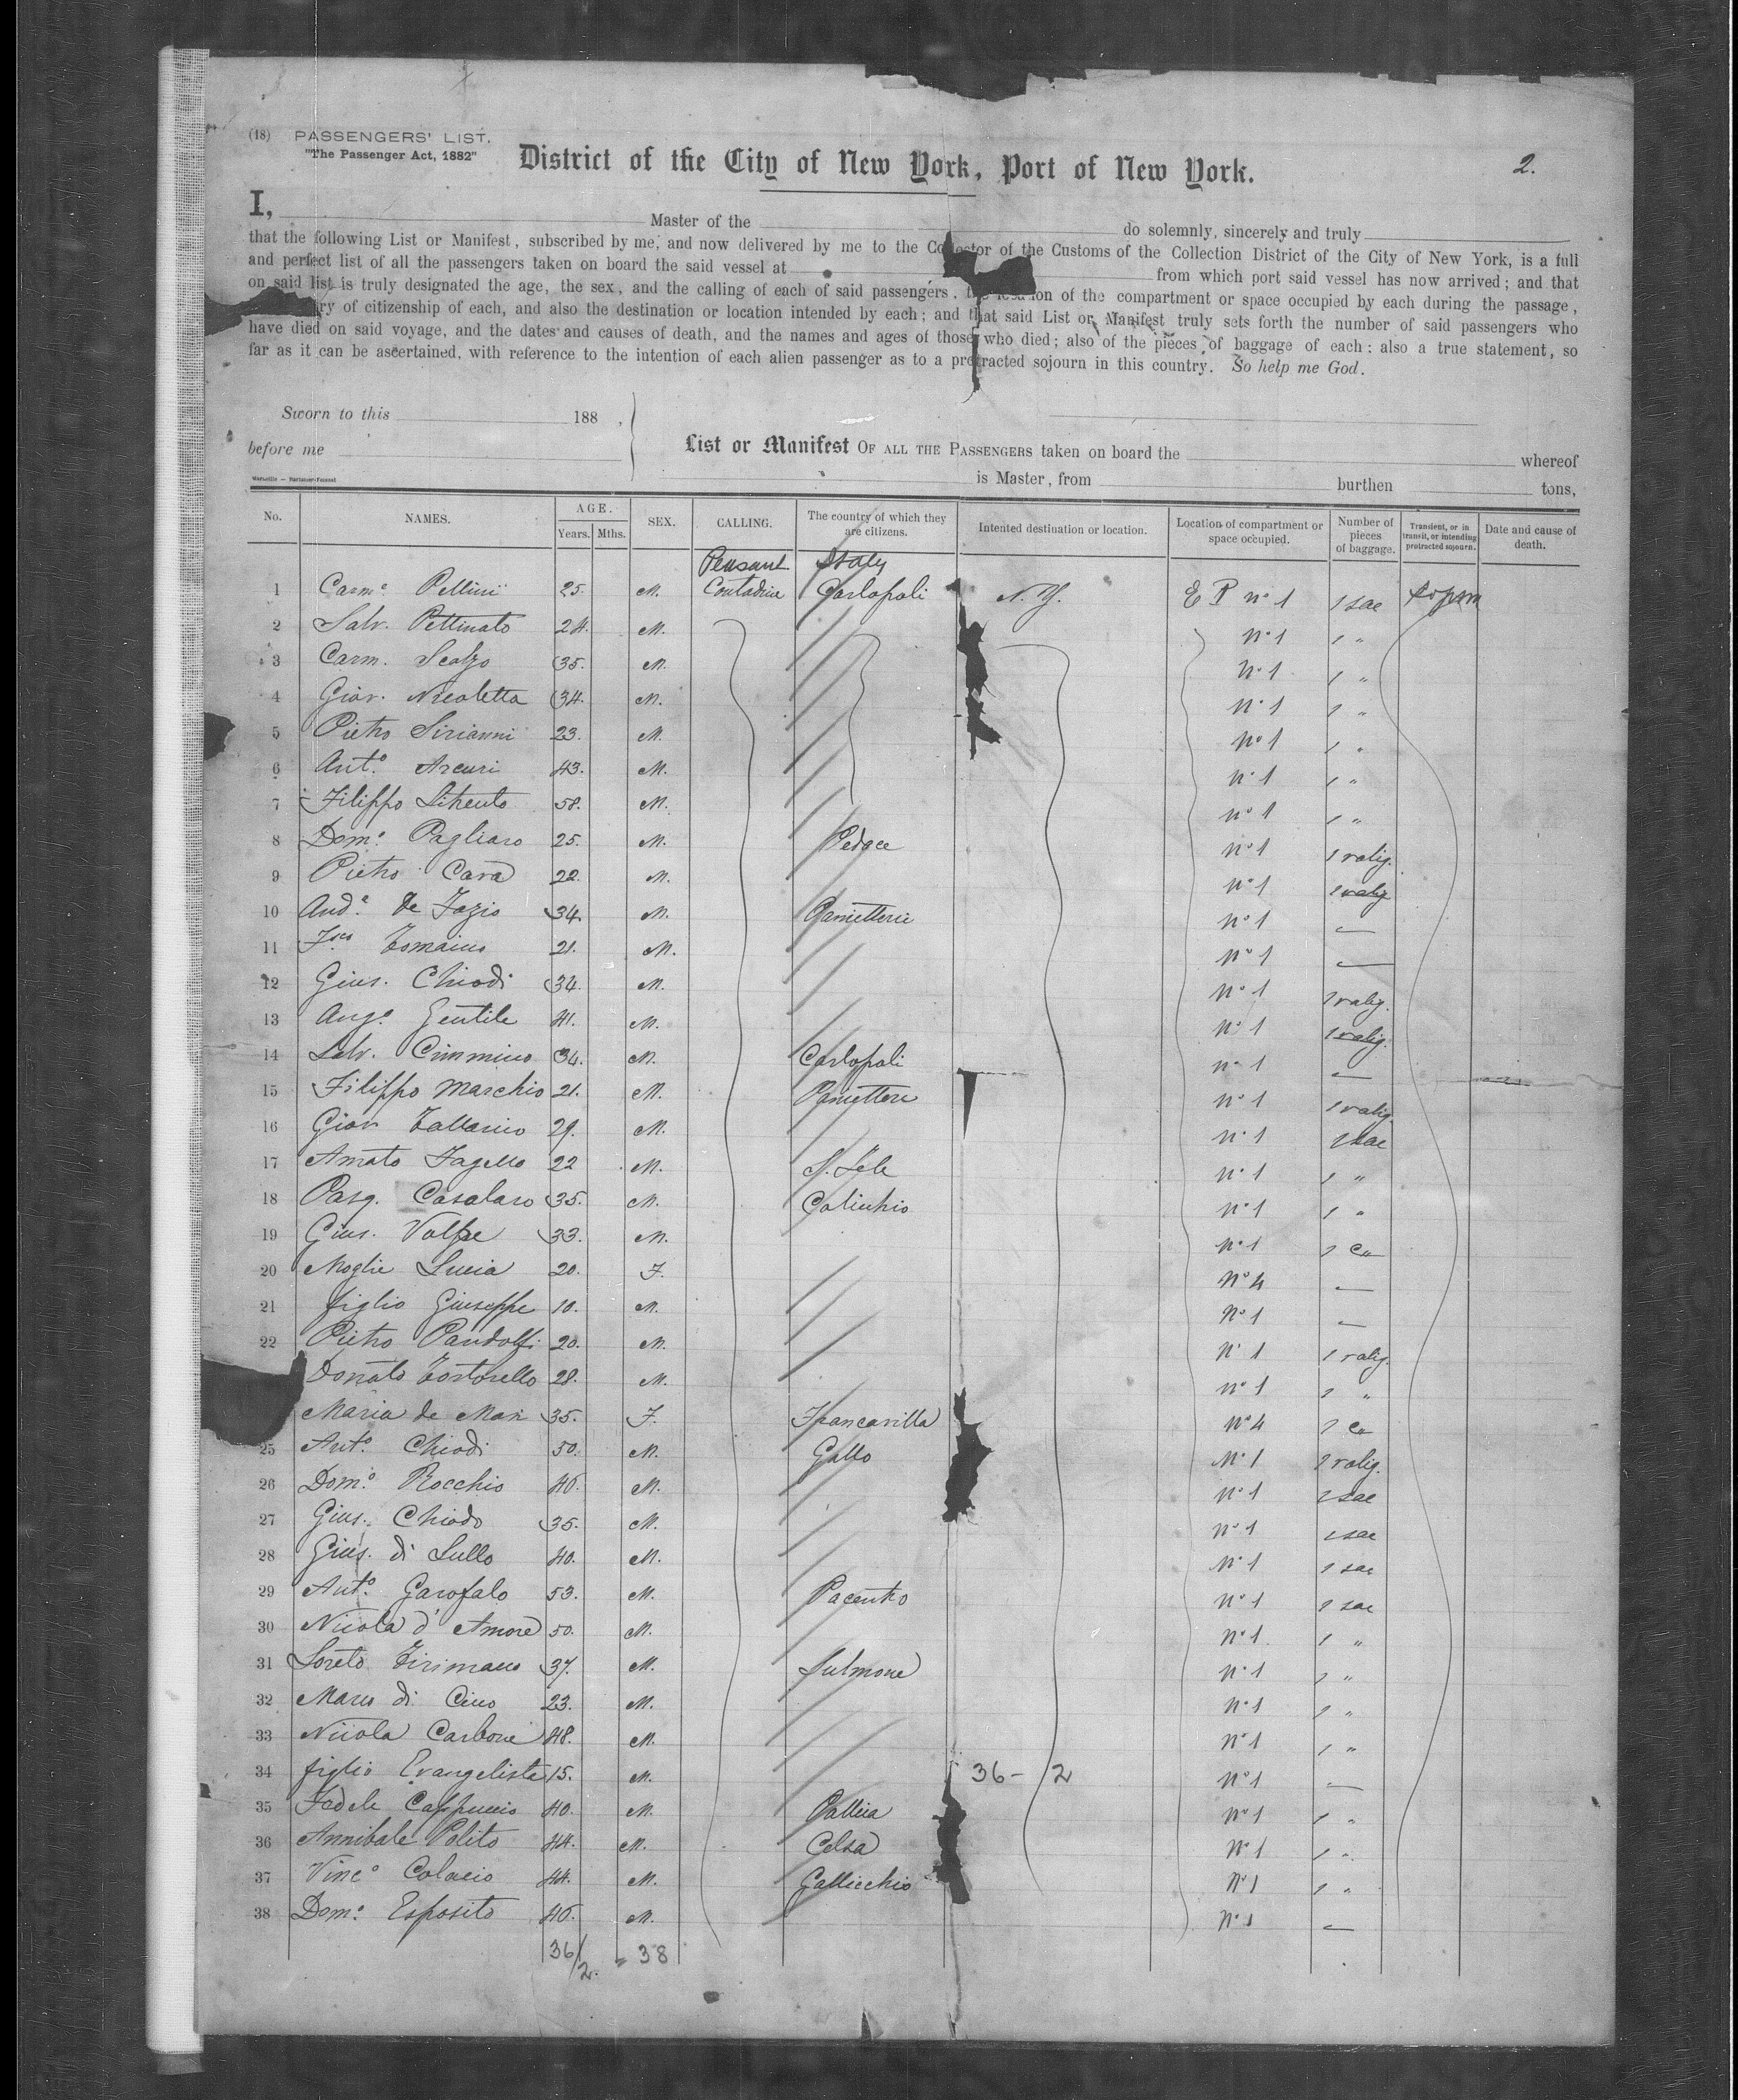 (18) PASSENGERS' LIST.
"The Passenger Act, 1882"
District of the City of New York, Port of New York.
2.
I, Master of the do solemnly, sincerely and truly
that the following List or Manifest, subscribed by me, and now delivered by me to the Collector of the Customs of the Collection District of the City of New York, is a full
and perfect list of all the passengers taken on board the said vessel at from which port said vessel has now arrived; and that
on said list is truly designated the age, the sex, and the calling of each of said passengers, the location of the compartment or space occupied by each during the passage,
ry of citizenship of each, and also the destination or location intended by each; and that said List or Manifest truly sets forth the number of said passengers who
have died on said voyage, and the dates and causes of death, and the names and ages of those who died; also of the pieces of baggage of each: also a true statement, so
far as it can be ascertained, with reference to the intention of each alien passenger as to a protracted sojourn in this country. So help me God.
Sworn to this 188 ,
before me
List or Manifest OF ALL THE PASSENGERS taken on board the whereof
is Master, from burthen tons,
No. NAMES. AGE. Years. Mths. SEX. CALLING. The country of which they are citizens. Intented destination or location. Location of compartment or space occupied. Number of pieces of baggage. Transient, or in transit, or intending protracted sojourn. Date and cause of death.
Peasant Italy
1 Carmo. Pellini 25. M. Contadini Carlopoli N.Y. E P no 1 1 sac
2 Salv. Pettinato 24. M. No 1 1 "
3 Carm. Scalzo 35. M. No 1 1 "
4 Giov. Nicoletta 34. M. No 1 1 "
5 Pietro Sirianni 23. M. No 1 1 "
6 Anto. Arcuri 43. M. No 1 1 "
7 Filippo 58. M. No 1 1 "
8 Domo. Pagliaro 25. M. Pedace No 1 1 valig.
9 Pietro Cara 22. M. No 1 1 valig
10 Anda. De Fazio 34. M. Panietterie No 1 —
11 Fsco Tomaino 21. M. No 1 —
12 Gius. Chiodi 34. M. No 1 1 valig.
13 Ango. Gentile 41. M. No 1 1 valig.
14 Salv. Cimmino 34. M. Carlopoli No 1 —
15 Filippo Marchio 21. M. Paniettere No 1 1 valig
16 Giov. Tallarico 29. M. No 1 1 sac
17 Amato Fazello 22 M. S. Fele No 1 1 "
18 Pasq. Casalaro 35. M. Calichio No 1 1 "
19 Gius. Volpe 33. M. No 1 1 c"
20 Moglie Lucia 20. F. No 4 —
21 figlio Giuseppe 10. M. No 1 —
22 Pietro Pandolfi 20. M. No 1 1 valig.
Donato Tortorello 28. M. No 1 1 "
Maria de Mari 35. F. Francavilla No 4 1 c"
25 Anto. Chiodi 50. M. Gallo No 1 1 valig.
26 Domo. Rocchio 46. M. No 1 1 sac
27 Gius. Chiodo 35. M. No 1 1 sac
28 Gius. di Lullo 40. M. No 1 1 sac
29 Anto. Garofalo 53. M. Pacentro No 1 1 sac
30 Nicola d'Amore 50. M. No 1 1 "
31 Loreto 37. M. Sulmone No 1 1 "
32 Marco di Cino 23. M. No 1 1 "
33 Nicola Carbone 48. M. No 1 1 "
34 figlio Evangelista 15. M. 36- 2 No 1 —
35 Fedele Cappuccio 40. M. No 1 1 "
36 Annibale Polito 44. M. Celsa No 1 1 "
37 Vinco Colucio 44. M. Gallicchio No 1 1 "
38 Domo. Esposito 46. M. No 1 —
36/2. = 38